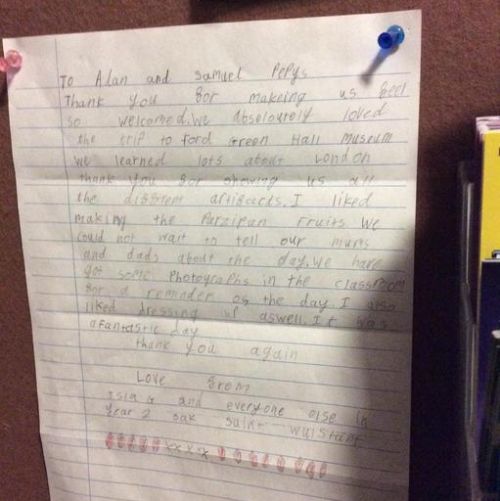 To Alan and Samuel Pepys
Thank you for makeing us feel
so welcomed. We absoloutely loved
the trip to Ford Green Hall Museum
we learned lots about London
thank you for showing us all
the different artifacts. I liked
making the Marzipan fruits We
could not wait to tell our mums
and dads about the day. We have
got some Photographs in the classroom
for a reminder of the day I also
liked dressing up aswell. It was
a fantastic day
thank you again
Love from
Isla G and everyone else in
Year 2 Saint Wulstans